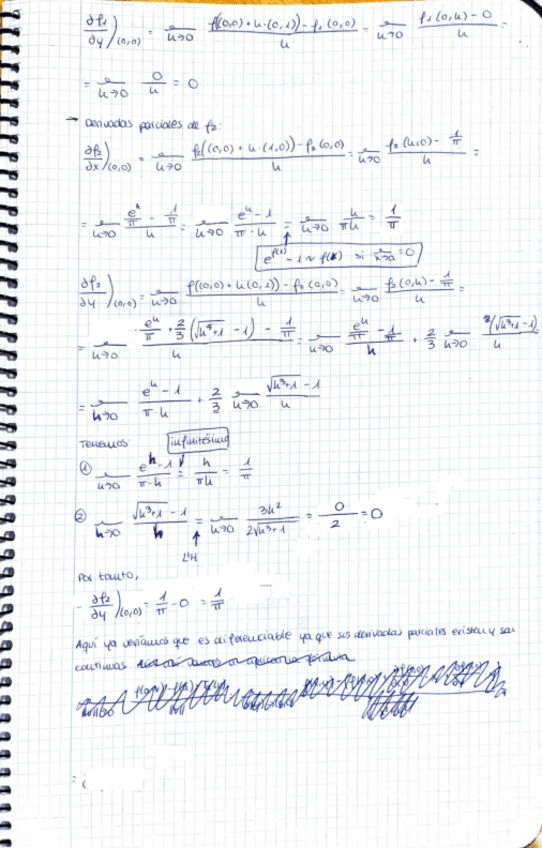 ∂f₁/∂y)₍₀,₀₎ = lim h→0 f((0,0)+h·(0,1)) - f₁(0,0) / h = lim h→0 f₁(0,h) - 0 / h =
= lim h→0 0/h = 0
→ Derivadas parciales de f₂:
∂f₂/∂x)₍₀,₀₎ = lim h→0 f₂((0,0) + h·(1,0)) - f₂(0,0) / h = lim h→0 f₂(h,0) - 1/π / h =
= lim h→0 (eʰ/π - 1/π) / h = lim h→0 (eʰ - 1) / (π·h) = lim h→0 h/πh = 1/π
e^f(x) - 1 ~ f(x) si lim x→a = 0
∂f₂/∂y)₍₀,₀₎ = lim h→0 f((0,0) + h(0,1)) - f₂(0,0) / h = lim h→0 f₂(0,h) - 1/π / h =
= lim h→0 (eʰ/π + 2/3 (√(h³+1) - 1) - 1/π) / h = lim h→0 (eʰ/π - 1/π) / h + 2/3 lim h→0 (√(h³+1) - 1) / h
= lim h→0 (eʰ - 1) / (π·h) + 2/3 lim h→0 (√(h³+1) - 1) / h
Tenemos infinitésimo
① lim h→0 (eʰ - 1) / (π·h) = h/πh = 1/π
② lim h→0 (√(h³+1) - 1) / h = lim h→0 3h² / 2√(h³+1) = 0/2 = 0
L'H
Por tanto,
- ∂f₂/∂y)₍₀,₀₎ = 1/π - 0 = 1/π
Aquí ya veríamos que es diferenciable ya que sus derivadas parciales existen y son
continuas